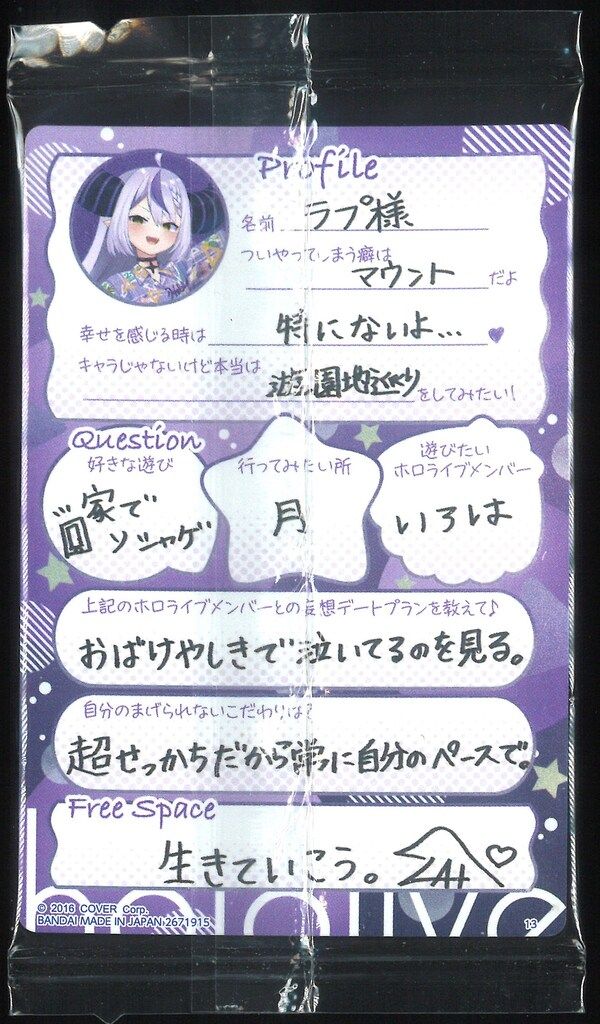 Profile
名前 ラプ様
ついやってしまう癖は
マウント だよ
幸せを感じる時は 特にないよ… ♥
キャラじゃないけど本当は
遊園地巡り をしてみたい!
Question
好きな遊び
家で
ソシャゲ
行ってみたい所
月
遊びたい
ホロライブメンバー
いろは
上記のホロライブメンバーとの妄想デートプランを教えて♪
おばけやしきで泣いてるのを見る。
自分のまげられないこだわりは?
超せっかちだから常に自分のペースで。
Free Space
生きていこう。
hololive
© 2016 COVER Corp.
BANDAI MADE IN JAPAN 2671915
13